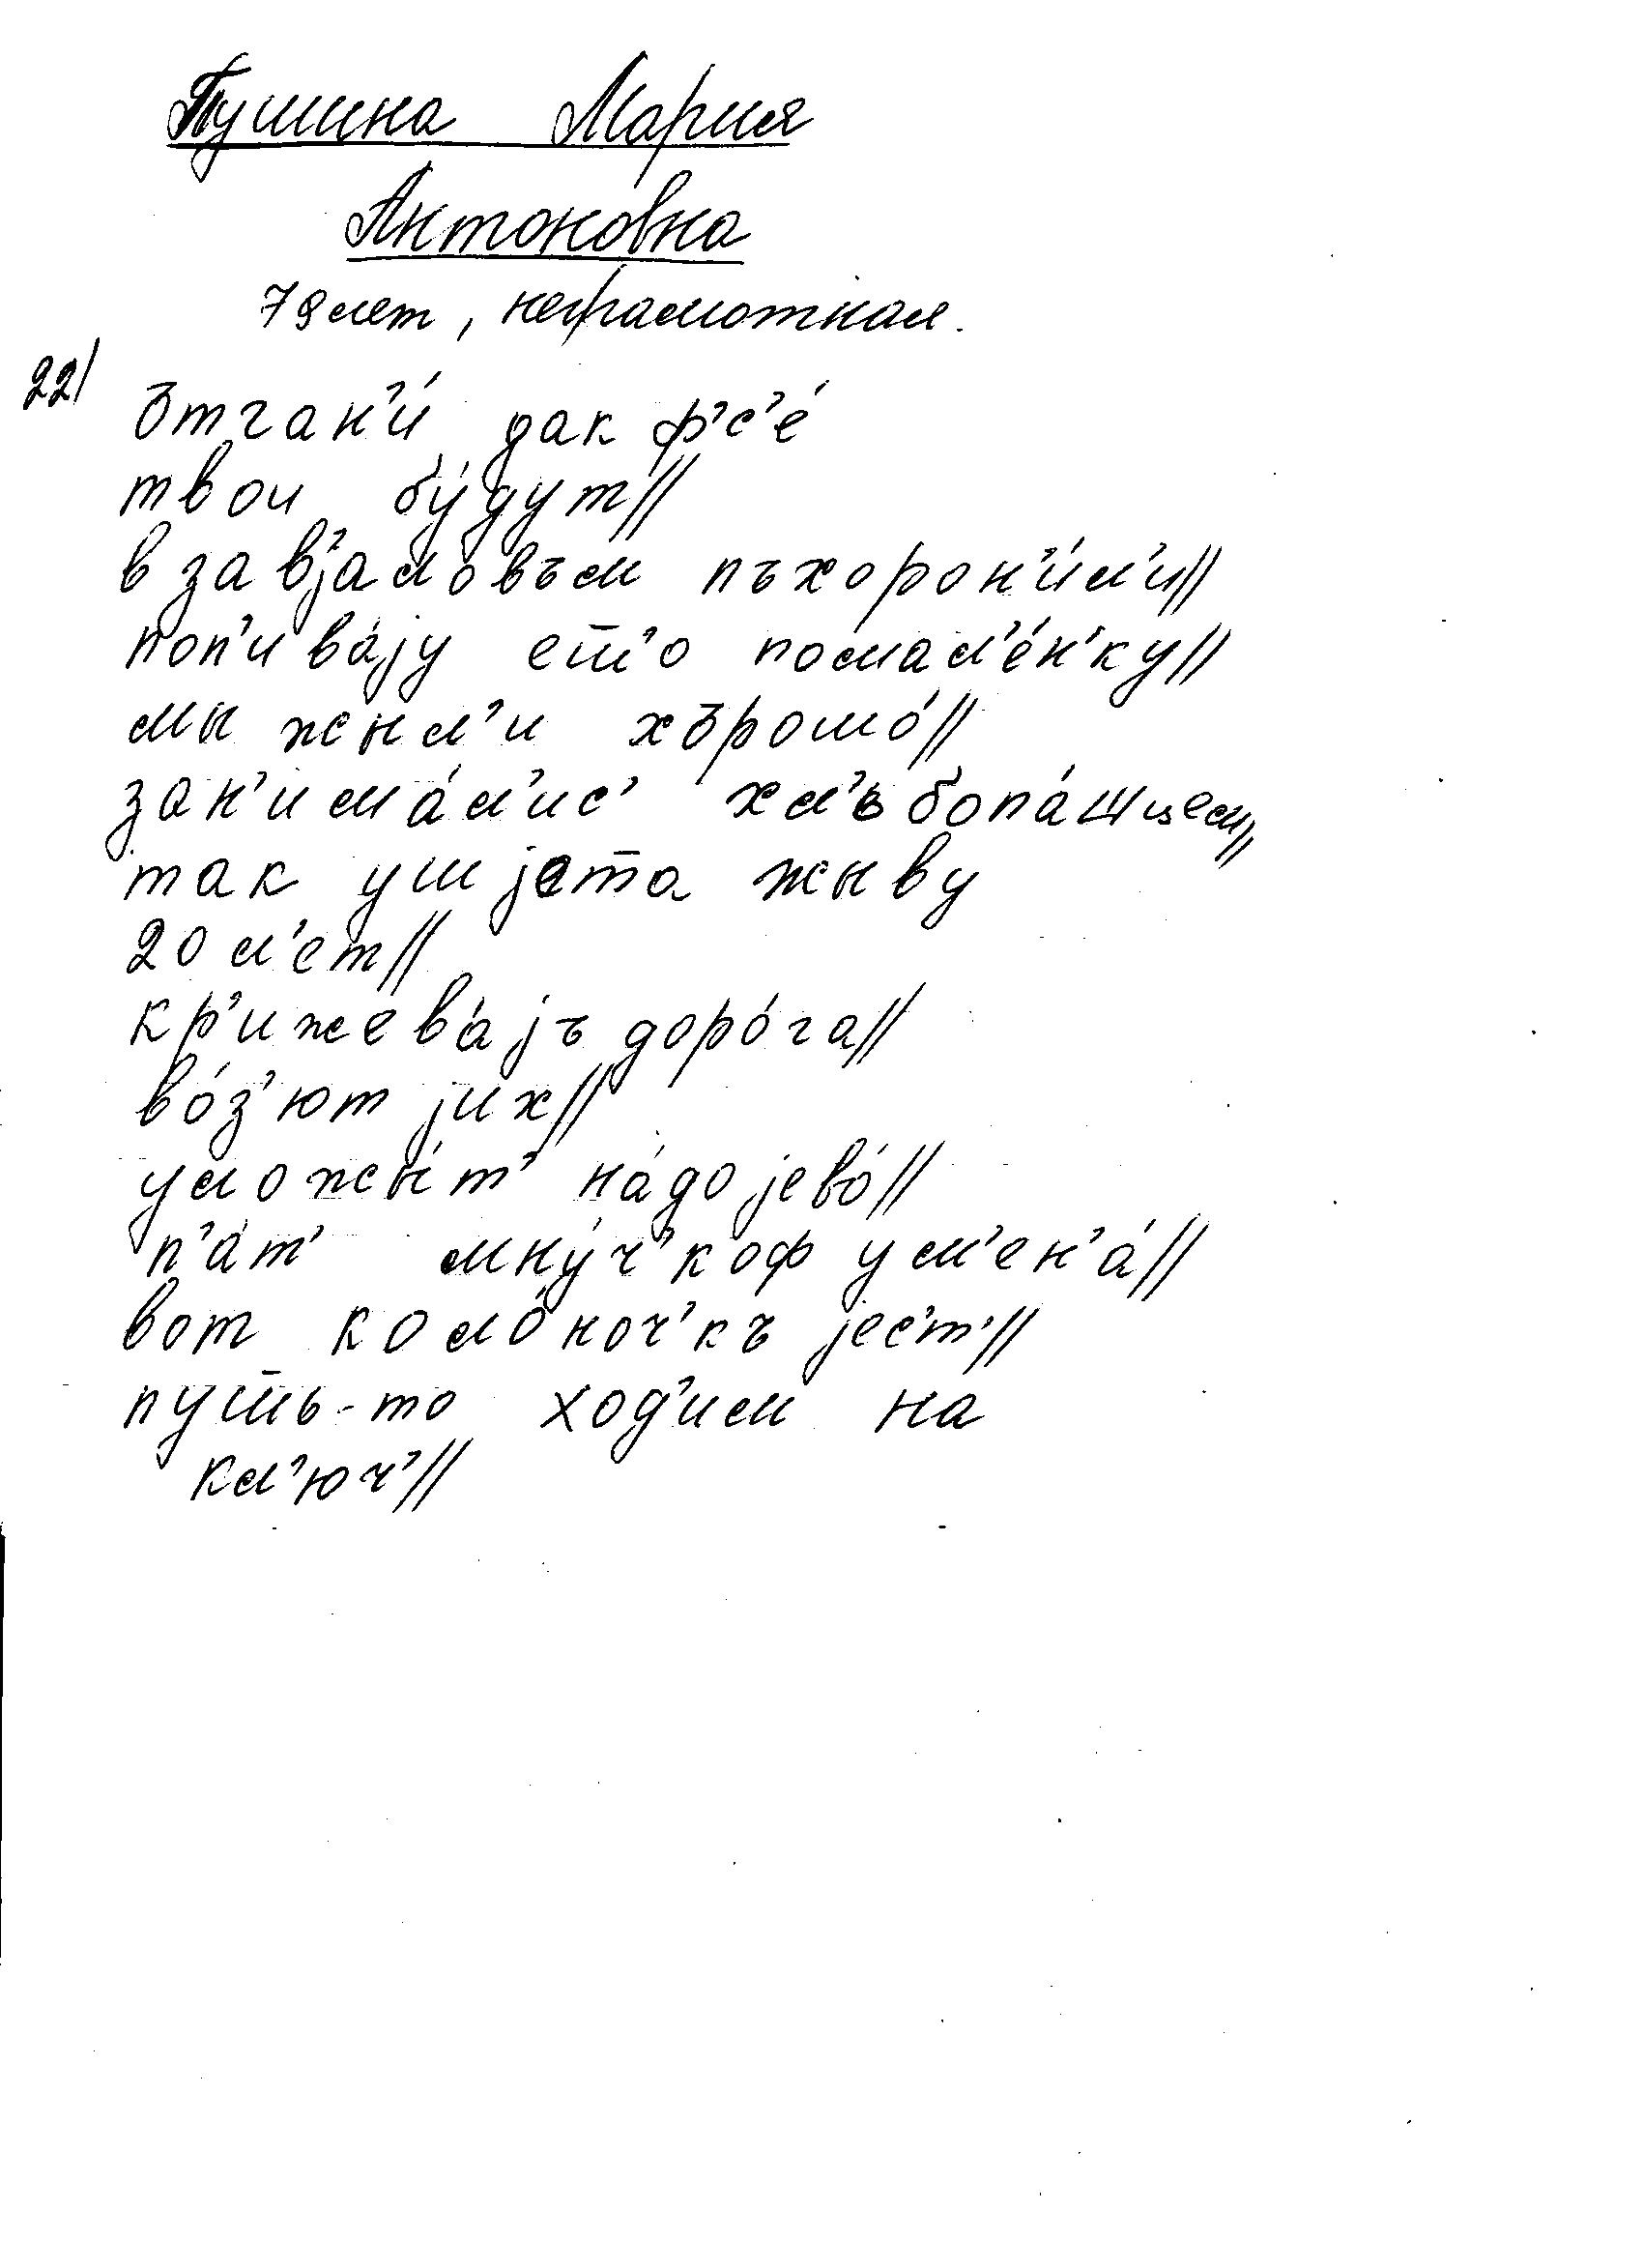 Пушина Мария
Антоновна
79 лет, неграмотная.
22/ ътган'и́ дак ф'с'е́
твои бу́дут//
в зав'јаловъм пъхорон'и́л'и//
поп'ива́ју ето помал'е́н'ку//
мы жыл'и хърошо́//
зан'има́л'ис' хл'ьбопа́шцем//
так уш јета жыву
20 л'ет//
кр'ижева́јъ доро́га//
во́з'ют јих//
уложы́т' на́до јево́//
п'ат' мну́ч'коф ум'ен'а́//
вот коло́ноч'къ јес'т'//
путь-то ход'им на
кл'юч'//